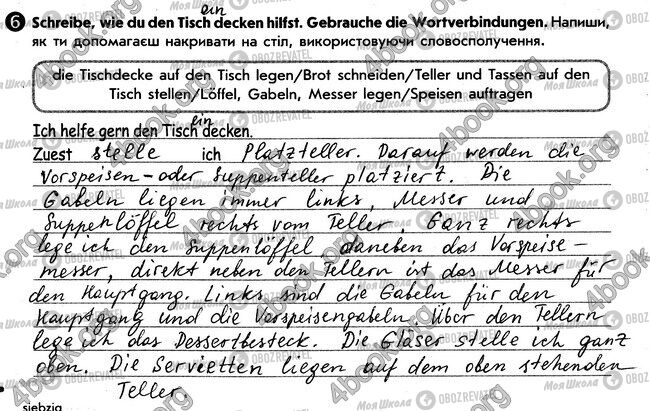 ein
6 Schreibe, wie du den Tisch decken hilfst. Gebrauche die Wortverbindungen. Напиши,
як ти допомагаєш накривати на стіл, використовуючи словосполучення.
die Tischdecke auf den Tisch legen/Brot schneiden/Teller und Tassen auf den
Tisch stellen/Löffel, Gabeln, Messer legen/Speisen auftragen
ein
Ich helfe gern den Tisch decken.
Zuest stelle ich Platzteller. Darauf werden die
Vorspeisen-oder Suppenteller platziert. Die
Gabeln liegen immer links, Messer und
Suppenlöffel rechts vom Teller. Ganz rechts
lege ich den Suppenlöffel, daneben das Vorspeise-
messer, direkt neben den Tellern ist das Messer für
den Hauptgang. Links sind die Gabeln für den
Hauptgang und die Vorspeisengabeln. Über den Tellern
lege ich das Dessertbesteck. Die Gläser stelle ich ganz
oben. Die Servietten liegen auf dem oben stehenden
Teller.
siebzig